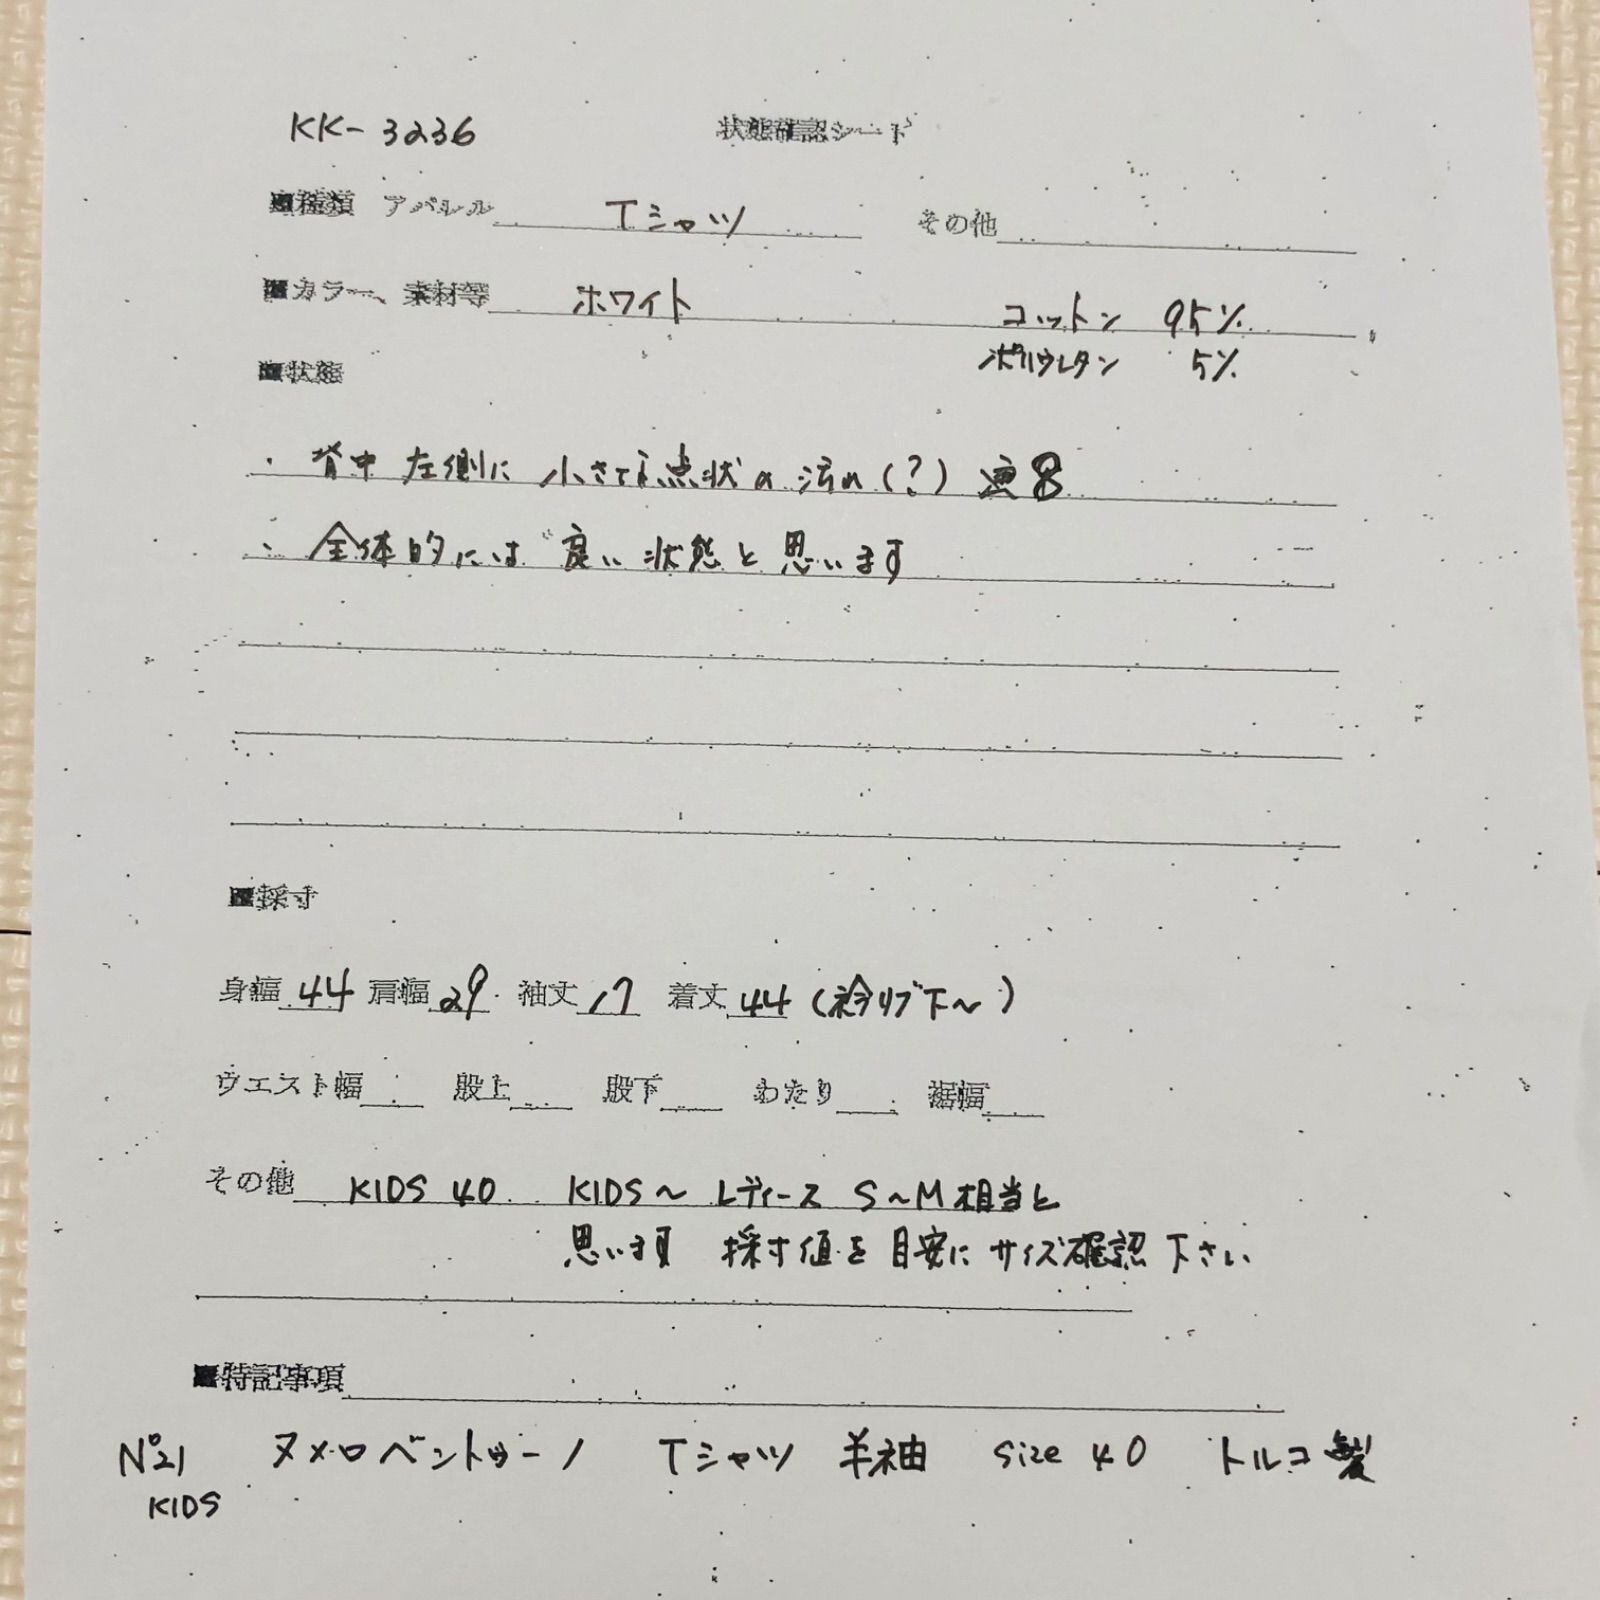 KK-3236 状態確認シート
■種類 アパレル Tシャツ その他
■カラー、素材等 ホワイト コットン 95%
ポリウレタン 5%
■状態
・背中 左側に 小さな点状の汚れ(?) 8
・全体的には 良い 状態と思います
■採寸
身幅 44 肩幅 29 袖丈 17 着丈 44 (衿リブ下〜)
ウエスト幅 股上 股下 わたり 裾幅
その他 KIDS 40 KIDS〜 レディース S〜M相当と
思います 採寸値を目安に サイズ確認 下さい
■特記事項
N°21 ヌメロベントゥーノ Tシャツ 半袖 size 40 トルコ製
KIDS